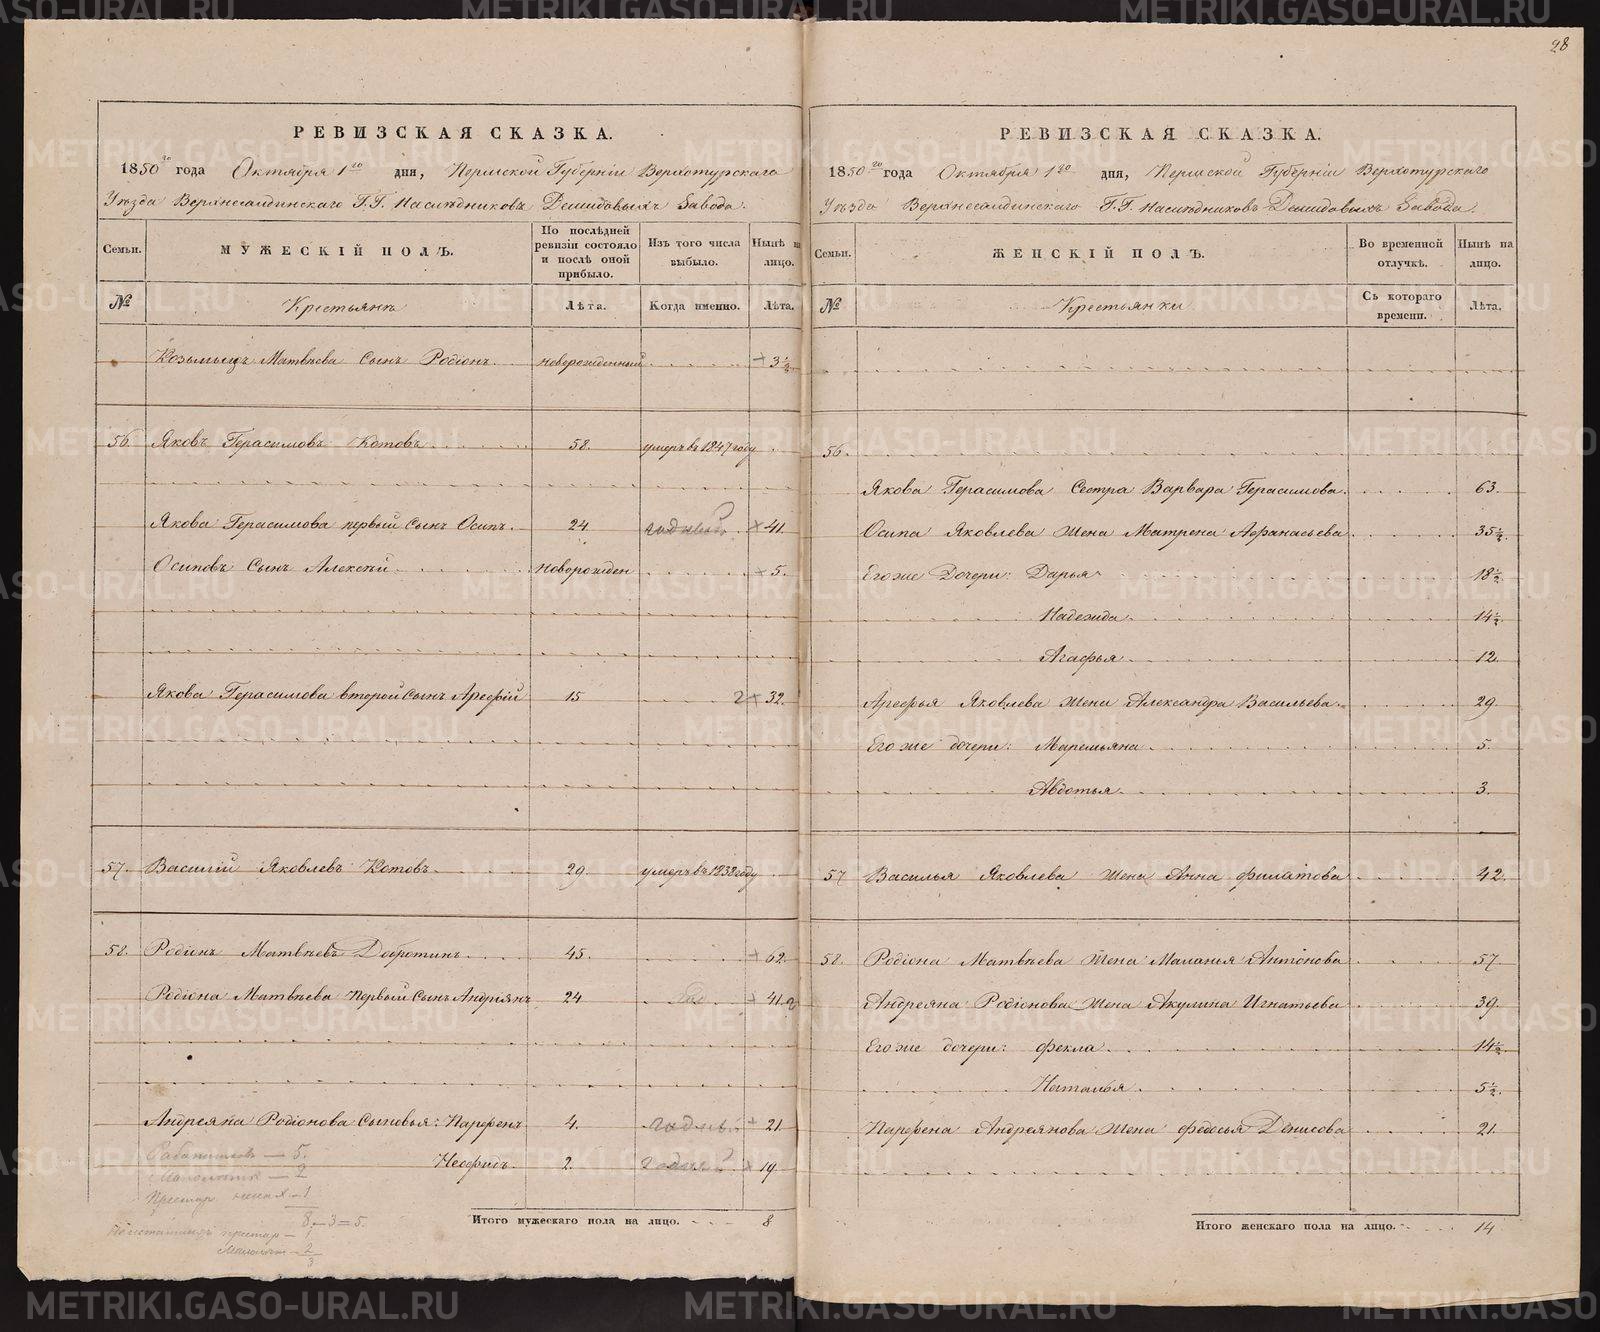 28
РЕВИЗСКАЯ СКАЗКА.
1850го года Октября 1го дня, Пермской Губернiи Верхотурскаго
Уѣзда Верхнесалдинскаго Г.Г. Наслѣдниковъ Демидовыхъ Завода.
Семьи. МУЖЕСКIЙ ПОЛЪ. По послѣдней ревизiи состояло и послѣ оной прибыло. Изъ того числа выбыло. Нынѣ на лицо.
№ Крестьянъ Лѣта. Когда именно. Лѣта.
Козьмы Матвѣева Сынъ Родiонъ новорожденный + 3½
56. Яковъ Герасимовъ Котовъ 58. умеръ въ 1847 году
Якова Герасимова первый Сынъ Осипъ. 24 годный + 41.
Осиповъ Сынъ Алексѣй новорожден + 5.
Якова Герасимова второй Сынъ Арефiй 15 2+ 32.
57. Василiй Яковлевъ Котовъ 29. умеръ въ 1838 году
58. Родiонъ Матвѣевъ Добротинъ 45. + 62.
Родiона Матвѣева первый Сынъ Андреянъ 24 + 41.
Андреяна Родiонова Сыновья: Парфенъ 4. годный + 21.
Неофидъ. 2. годный + 19.
Работников — 5.
Малолѣтн — 2
Престар — 1
8 — 3 = 5.
престар — 1
Малолѣт — 2
3
Итого мужескаго пола на лицо. 8
РЕВИЗСКАЯ СКАЗКА.
1850го года Октября 1го дня, Пермской Губернiи Верхотурскаго
Уѣзда Верхнесалдинскаго Г.Г. Наслѣдниковъ Демидовыхъ Завода.
Семьи. ЖЕНСКIЙ ПОЛЪ. Во временной отлучкѣ. Нынѣ на лицо.
№ Крестьянки Съ котораго времени. Лѣта.
56.
Якова Герасимова Сестра Варвара Герасимова. 63.
Осипа Яковлева Жена Матрена Афанасьева 35½.
Его же Дочери: Дарья 18½.
Надежда 14½.
Агафья 12.
Арефья Яковлева Жена Александра Васильева. 29
Его же дочери: Маремьяна 5.
Авдотья 3.
57 Василья Яковлева Жена Анна Филатова 42.
58. Родiона Матвѣева Жена Маланья Антонова 57.
Андреяна Родiонова Жена Акулина Игнатьева 39.
Его же дочери: Фекла 14½.
Наталья 5½.
Парфена Андреянова Жена Федосья Денисова 21.
Итого женскаго пола на лицо. 14
METRIKI.GASO-URAL.RU